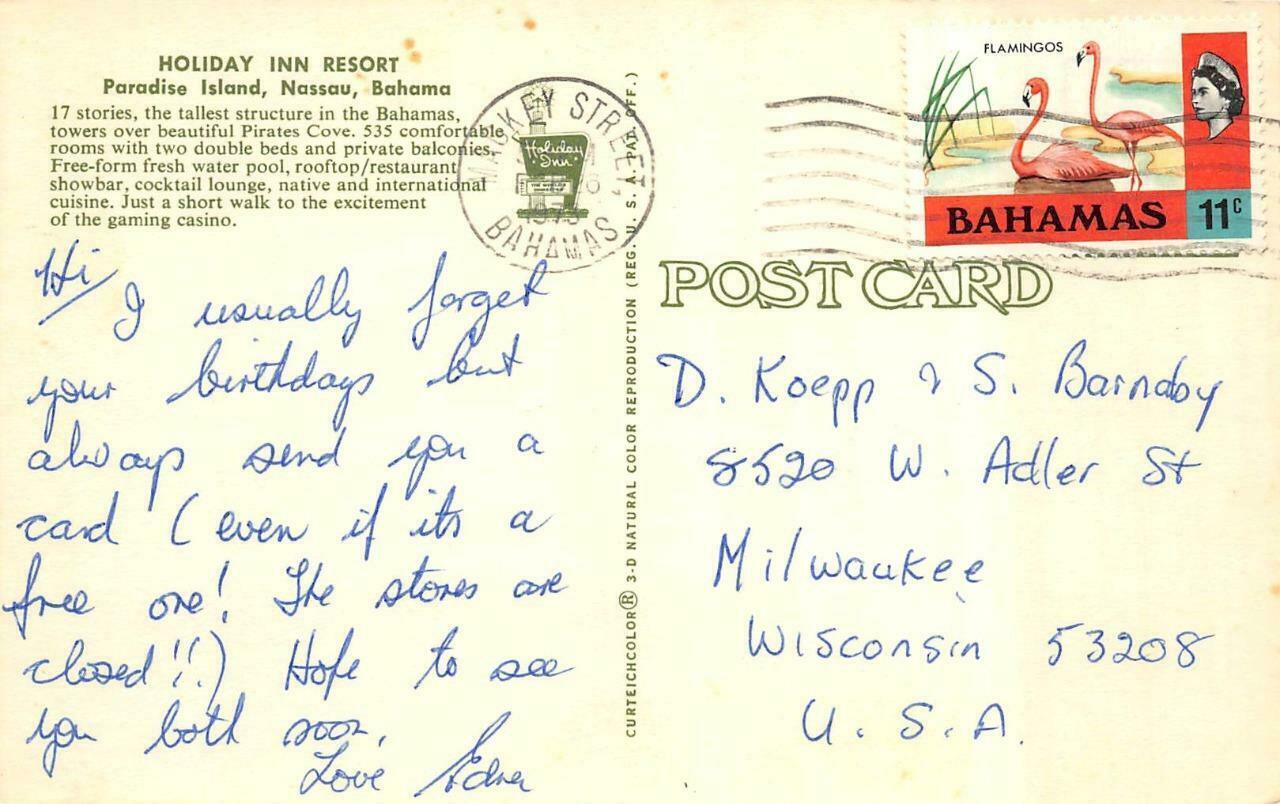 HOLIDAY INN RESORT
Paradise Island, Nassau, Bahama
17 stories, the tallest structure in the Bahamas,
towers over beautiful Pirates Cove. 535 comfortable
rooms with two double beds and private balconies.
Free-form fresh water pool, rooftop/restaurant
showbar, cocktail lounge, native and international
cuisine. Just a short walk to the excitement
of the gaming casino.
Holiday
Inn
STREET,
1973
BAHAMAS
FLAMINGOS
BAHAMAS 11c
Hi
I usually forget
your birthdays but
always send you a
card (even if its a
free one! The stores are
closed!!) Hope to see
you both soon.
Love Edna
CURTEICHCOLOR® 3-D NATURAL COLOR REPRODUCTION (REG. U. S. A. PAT. OFF.)
POST CARD
D. Koepp & S. Barnaby
8520 W. Adler St
Milwaukee
Wisconsin 53208
U.S.A.